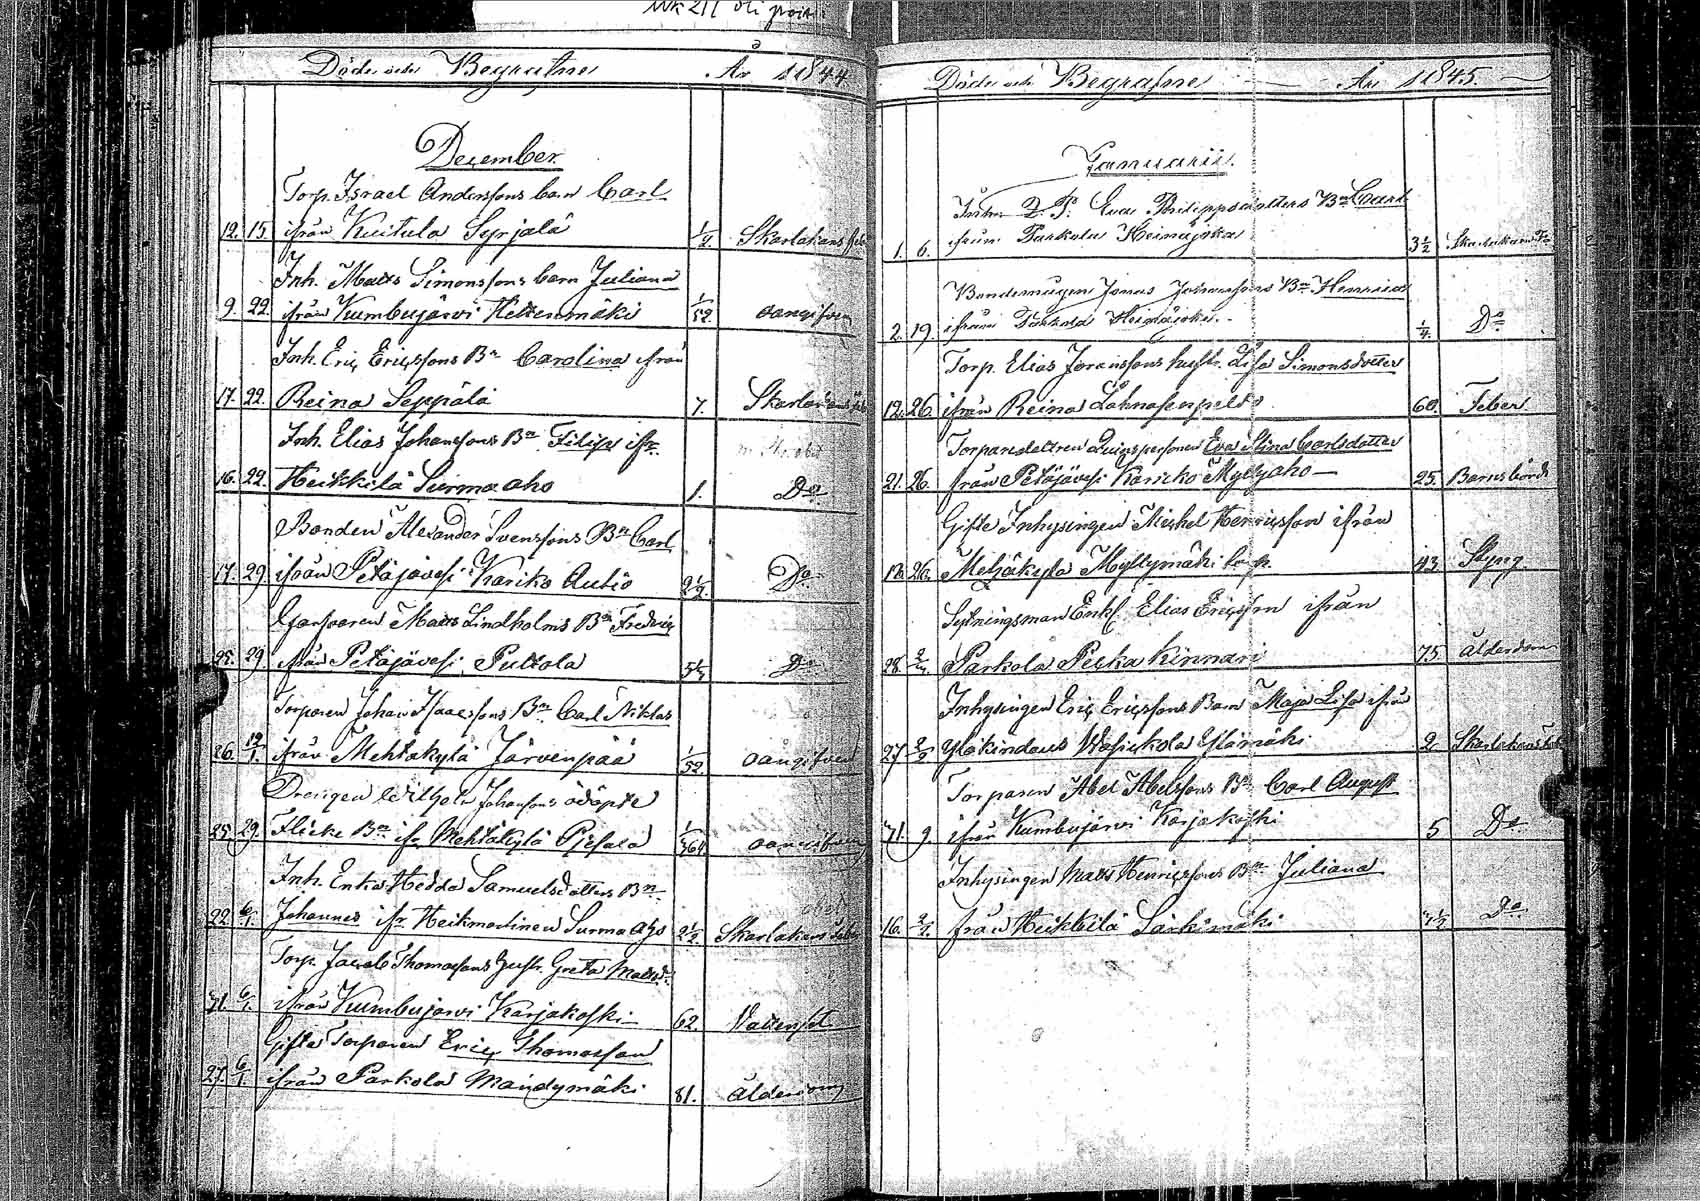 Döde och Begrafne År 1844.
December
Torp. Israel Anderssons barn Carl
12. 15. ifrån Kuitula Syrjälä 1/2 Skarlakans
Inh. Matts Simonssons barn Juliana
9. 22. ifrån Kumbujärvi Kettenmäki 1/52. oangifven
Inh. Eric Ericssons Bn Carolina ifrån
17. 22. Reina Seppälä 7. Skarlakans
Inh. Elias Johanssons Bn Filip ifr.
16. 22. Heikkilä Surmaaho 1. Do
Bonden Alexander Svenssons Bn Carl
17. 29. ifrån Petäjävesi Kariko Autio 2 1/2 Do
Matts Lindholms Bn Fredric
25. 29 ifrån Petäjävesi Pultola Do
Torparen Johan Isaacssons Bn Carl Niklas
26. 12/1. ifrån Mehtäkylä Järvenpää 1/52. oangifven
Drengen Wilhelm Johanssons odöpte
25. 29. Flicke Bn ifr Mehtäkylä 1/364. oangifven
Inh. Enka Hedda Samuelsdotters Bn
22. 6/1. Johannes ifr Heikmortinen Surma Aho 2 1/2 Skarlakans feber
Torp. Jacob Thomassons hustr. Greta Mattsd.
31. 6/1. ifrån Kumbujärvi Karjakoski 62. Vattensot
Gifte Torparen Eric Thomasson
27. 6/1. ifrån Parkola Mändymäki 81. Ålderdom
Döde och Begrafne År 1845.
Januarii.
Inh. Eva Philippsdotters Bn Carl
1. 6. ifrån Parkola Heinäjoka 3 1/2 Skarlakans F
Bondemågen Jonas Johanssons Bn Henric
2. 19. ifrån Parkola Heinäjoka 1/4. Do
Torp. Elias Joranssons hustr. Lisa Simonsdotter
12. 26. ifrån Reina Lahnasenpelto 60. Feber
Torparedottren Qvinspersonen Eva Stina Carlsdotter
21. 26. från Petäjävesi Karicko Myllyaho 25. Barnsbörd
Gifte Inhysingen Michel Henricsson ifrån
26. Mehtäkylä Myllymäki 43 Styng
Sytningsman Enkl. Elias Ericsson ifrån
28. 2/2. Parkola Pecka Kinnari 75. ålderdom
Inhysingen Eric Ericssons Barn Maja Lisa ifrån
27. 2/2 Yläkindaus Ylämäki 2. Skarlakans feb
Torparen Abel Abelssons Bn Carl August
31. 9. ifrån Kumbujärvi Karjakoski 5 Do
Inhysingen Matts Henricssons Bn Juliana
16. 2/2. från Heikkilä Särkimäki Do